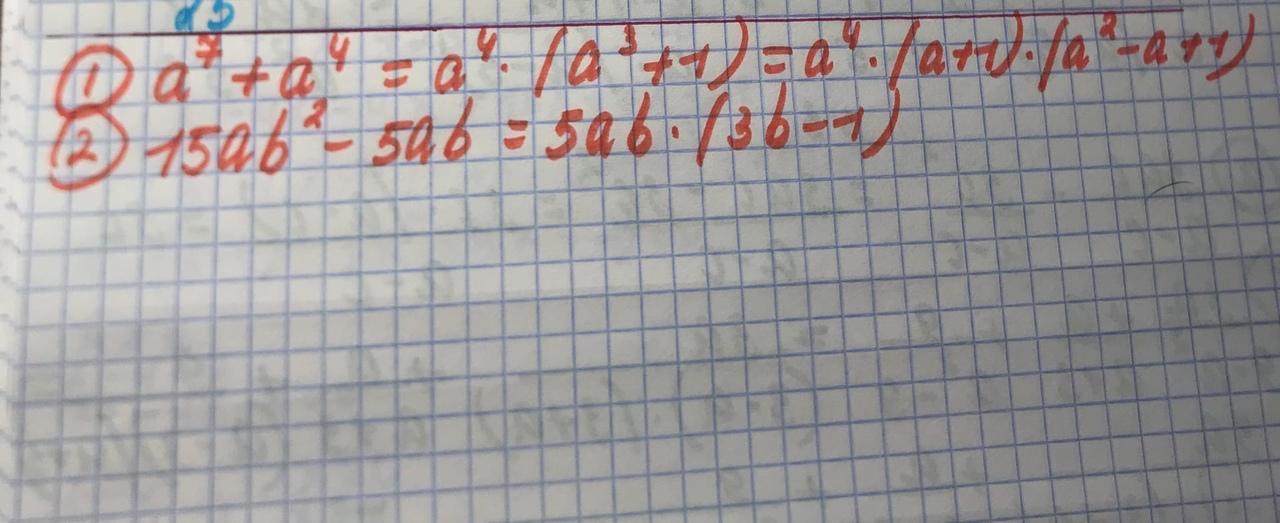 ① a⁷ + a⁴ = a⁴ · (a³ + 1) = a⁴ · (a+1) · (a² - a + 1)
② 15ab² - 5ab = 5ab · (3b - 1)